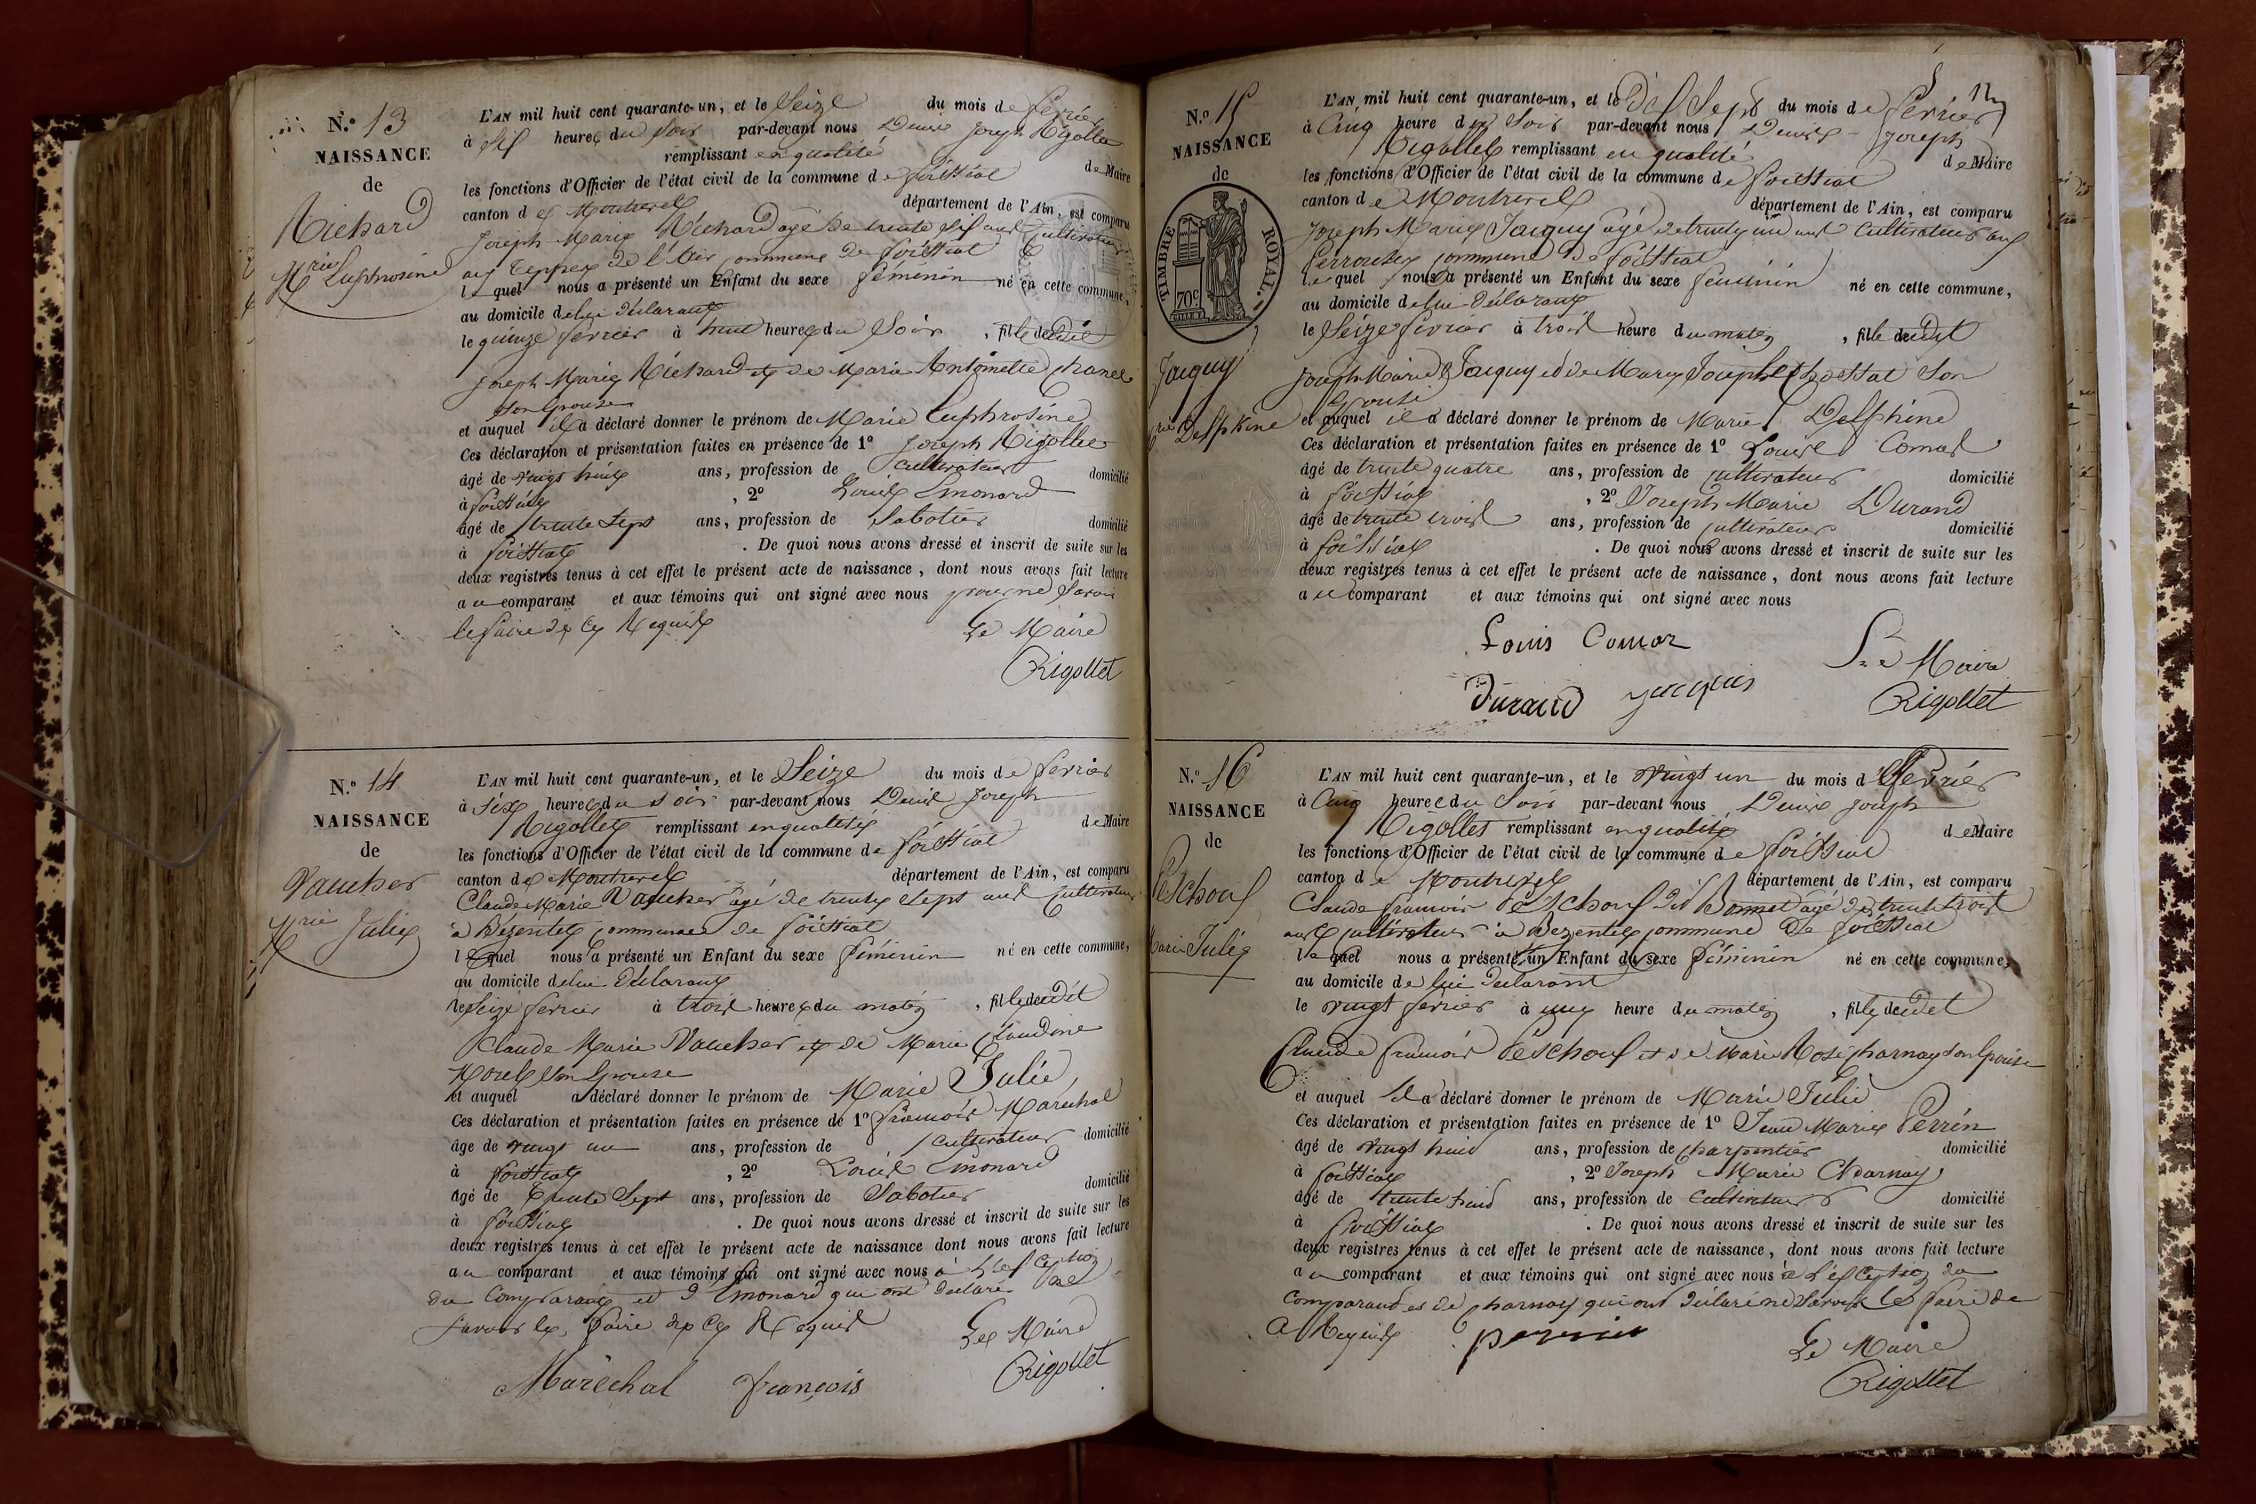 N.º 13
NAISSANCE
de
Richard
Mrie Euphrosine
L'AN mil huit cent quarante-un, et le Seize du mois de février
à Six heures du Soir par-devant nous Denis Joseph Rigollet
remplissant en qualité de Maire
les fonctions d'Officier de l'état civil de la commune de foissiat
canton de Montrevel département de l'Ain, est comparu
Joseph Marie Richard agé de trente six ans Cultivateur
aux teppes de commune de foissiat
lequel nous a présenté un Enfant du sexe féminin né en cette commune,
au domicile de lui déclarant
le quinze fevrier à huit heures du Soir, fille dudit
Joseph Marie Richard et de Marie Antoinette
Son Epouse
et auquel il a déclaré donner le prénom de Marie Euphrosine
Ces déclaration et présentation faites en présence de 1º Joseph Rigollet
âgé de vingt huit ans, profession de Cultivateur domicilié
à foissiat, 2º Louis Emonard
âgé de trente Sept ans, profession de Sabotier domicilié
à foissiat. De quoi nous avons dressé et inscrit de suite sur les
deux registres tenus à cet effet le présent acte de naissance, dont nous avons fait lecture
au comparant et aux témoins qui ont signé avec nous pour ne Savoir
le faire de ce Requis
Le Maire
Rigollet
N.º 14
NAISSANCE
de
Vaucher
Mrie Julie
L'AN mil huit cent quarante-un, et le Seize du mois de fevrier
à Six heures du soir par-devant nous Denis Joseph
Rigollet remplissant en qualité de Maire
les fonctions d'Officier de l'état civil de la commune de foissiat
canton de Montrevel département de l'Ain, est comparu
Claude Marie Vaucher agé de trente Sept ans Cultivateur
à Bezentet commune de foissiat
lequel nous a présenté un Enfant du sexe féminin né en cette commune,
au domicile de lui Déclarant
le Seize fevrier à trois heures du matin, fille dudit
Claude Marie Vaucher et de Marie Claudine
Morel Son Epouse
et auquel a déclaré donner le prénom de Marie Julie
Ces déclaration et présentation faites en présence de 1º françois Marechal
âgé de vingt un ans, profession de cultivateur domicilié
à foissiat, 2º Louis Emonard
âgé de trente Sept ans, profession de Sabotier domicilié
à foissiat. De quoi nous avons dressé et inscrit de suite sur les
deux registres tenus à cet effet le présent acte de naissance dont nous avons fait lecture
au comparant et aux témoins qui ont signé avec nous à L'exception
du Comparant et d'Emonard qui ont déclaré ne
Savoir le faire de ce Requis
Le Maire
Maréchal françois
Rigollet
N.º 15
NAISSANCE
de
TIMBRE ROYAL.
70c
Jacquy
Mrie Delphine
L'AN mil huit cent quarante-un, et le Dix Sept du mois de février
à Cinq heure du Soir par-devant nous Denis Joseph
Rigollet remplissant en qualité de Maire
les fonctions d'Officier de l'état civil de la commune de foissiat
canton de Montrevel département de l'Ain, est comparu
Joseph Marie Jacquy agé de trente un ans Cultivateur aux
Perrouses commune de foissiat
lequel nous a présenté un Enfant du sexe féminin né en cette commune,
au domicile de lui déclarant
le Seize fevrier à trois heure du matin, fille dudit
Joseph Marie Jacquy et de Marie Josephte Chossat Son
Epouse
et auquel il a déclaré donner le prénom de Marie Delphine
Ces déclaration et présentation faites en présence de 1º Louis Comas
âgé de trente quatre ans, profession de cultivateur domicilié
à foissiat, 2º Joseph Marie Durand
âgé de trente trois ans, profession de cultivateur domicilié
à foissiat. De quoi nous avons dressé et inscrit de suite sur les
deux registres tenus à cet effet le présent acte de naissance, dont nous avons fait lecture
au comparant et aux témoins qui ont signé avec nous
Louis Comaz
Le Maire
Durand Jacquis
Rigollet
N.º 16
NAISSANCE
de
Péchoux
Marie Julie
L'AN mil huit cent quarante-un, et le vingt un du mois de février
à Cinq heures du Soir par-devant nous Denis Joseph
Rigollet remplissant en qualité de Maire
les fonctions d'Officier de l'état civil de la commune de foissiat
canton de Montrevel département de l'Ain, est comparu
Claude françois Péchoux dit Bonnet agé de trente trois
ans Cultivateur à Bezentet commune de foissiat
lequel nous a présenté un Enfant du sexe féminin né en cette commune,
au domicile de lui Déclarant
le vingt fevrier à une heure du matin, fille dudit
Claude françois Péchoux et de Marie Rose Charnay Son Epouse
et auquel il a déclaré donner le prénom de Marie Julie
Ces déclaration et présentation faites en présence de 1º Jean Marie Perrin
âgé de vingt huit ans, profession de charpentier domicilié
à foissiat, 2º Joseph Marie Charnay
âgé de trente huit ans, profession de Cultivateur domicilié
à foissiat. De quoi nous avons dressé et inscrit de suite sur les
deux registres tenus à cet effet le présent acte de naissance, dont nous avons fait lecture
au comparant et aux témoins qui ont signé avec nous à L'exception du
Comparant et de Charnay qui ont déclaré ne Savoir le faire de
ce Requis
Perrin
Le Maire
Rigollet